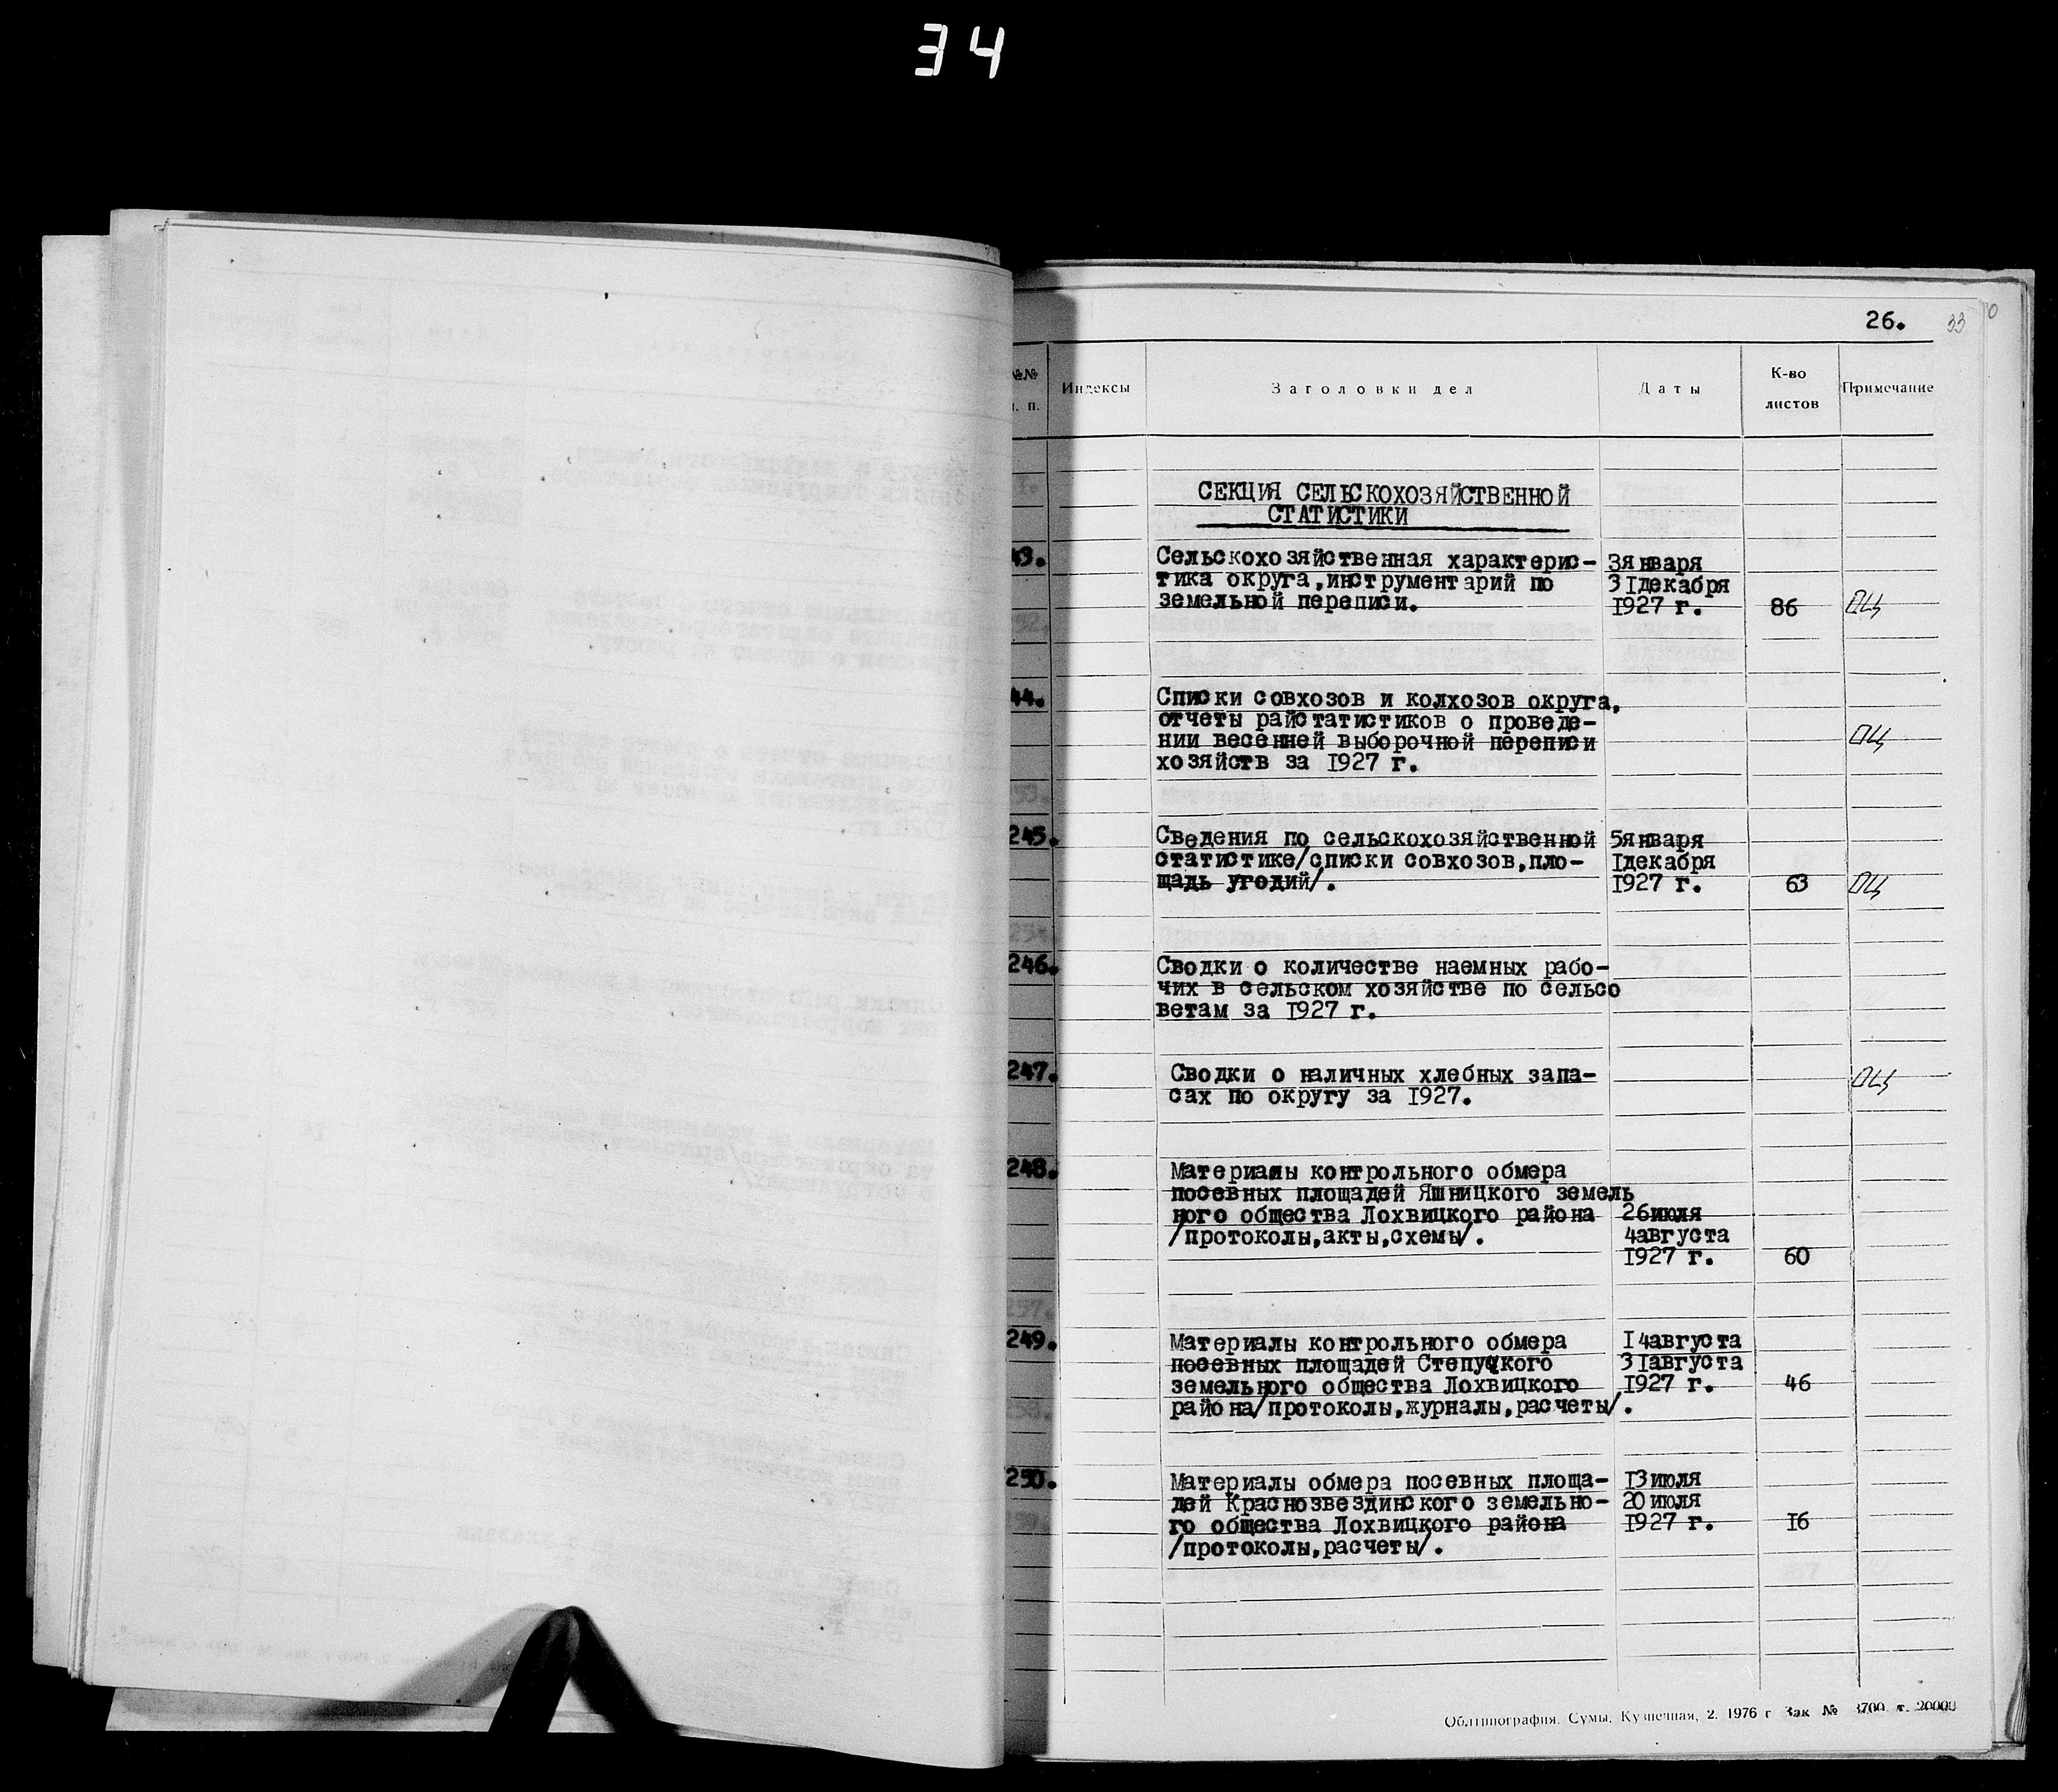 34
26. 33
№№ п. п. Индексы Заголовки дел Даты К-во листов Примечание
СЕКЦИЯ СЕЛЬСКОХОЗЯЙСТВЕННОЙ
СТАТИСТИКИ
43. Сельскохозяйственная характерис- 3января
тика округа,инструментарий по 31декабря
земельной переписи. 1927 г. 86 ОЦ
44. Списки совхозов и колхозов округа,
отчеты райстатистиков о проведе-
нии весенней выборочной переписи ОЦ
хозяйств за 1927 г.
245. Сведения по сельскохозяйственной 5января
статистике/списки совхозов,пло- 1декабря
щадь угодий/. 1927 г. 63 ОЦ
246. Сводки о количестве наемных рабо-
чих в сельском хозяйстве по сельсо
ветам за 1927 г.
247. Сводки о наличных хлебных запа- ОЦ
сах по округу за 1927.
248. Материалы контрольного обмера
посевных площадей Яшницкого земель
ного общества Лохвицкого района 26июля
/протоколы,акты,схемы/. 4августа
1927 г. 60
249. Материалы контрольного обмера 14августа
посевных площадей Степуцкого 31августа
земельного общества Лохвицкого 1927 г. 46
района/протоколы,журналы,расчеты/.
250. Материалы обмера посевных площа- 13июля
дей Краснозвездинского земельно- 20июля
го общества Лохвицкого района 1927 г. 16
/протоколы,расчеты/.
Облтипография. Сумы, Кузнечная, 2. 1976 г Зак № 3700 т. 20000